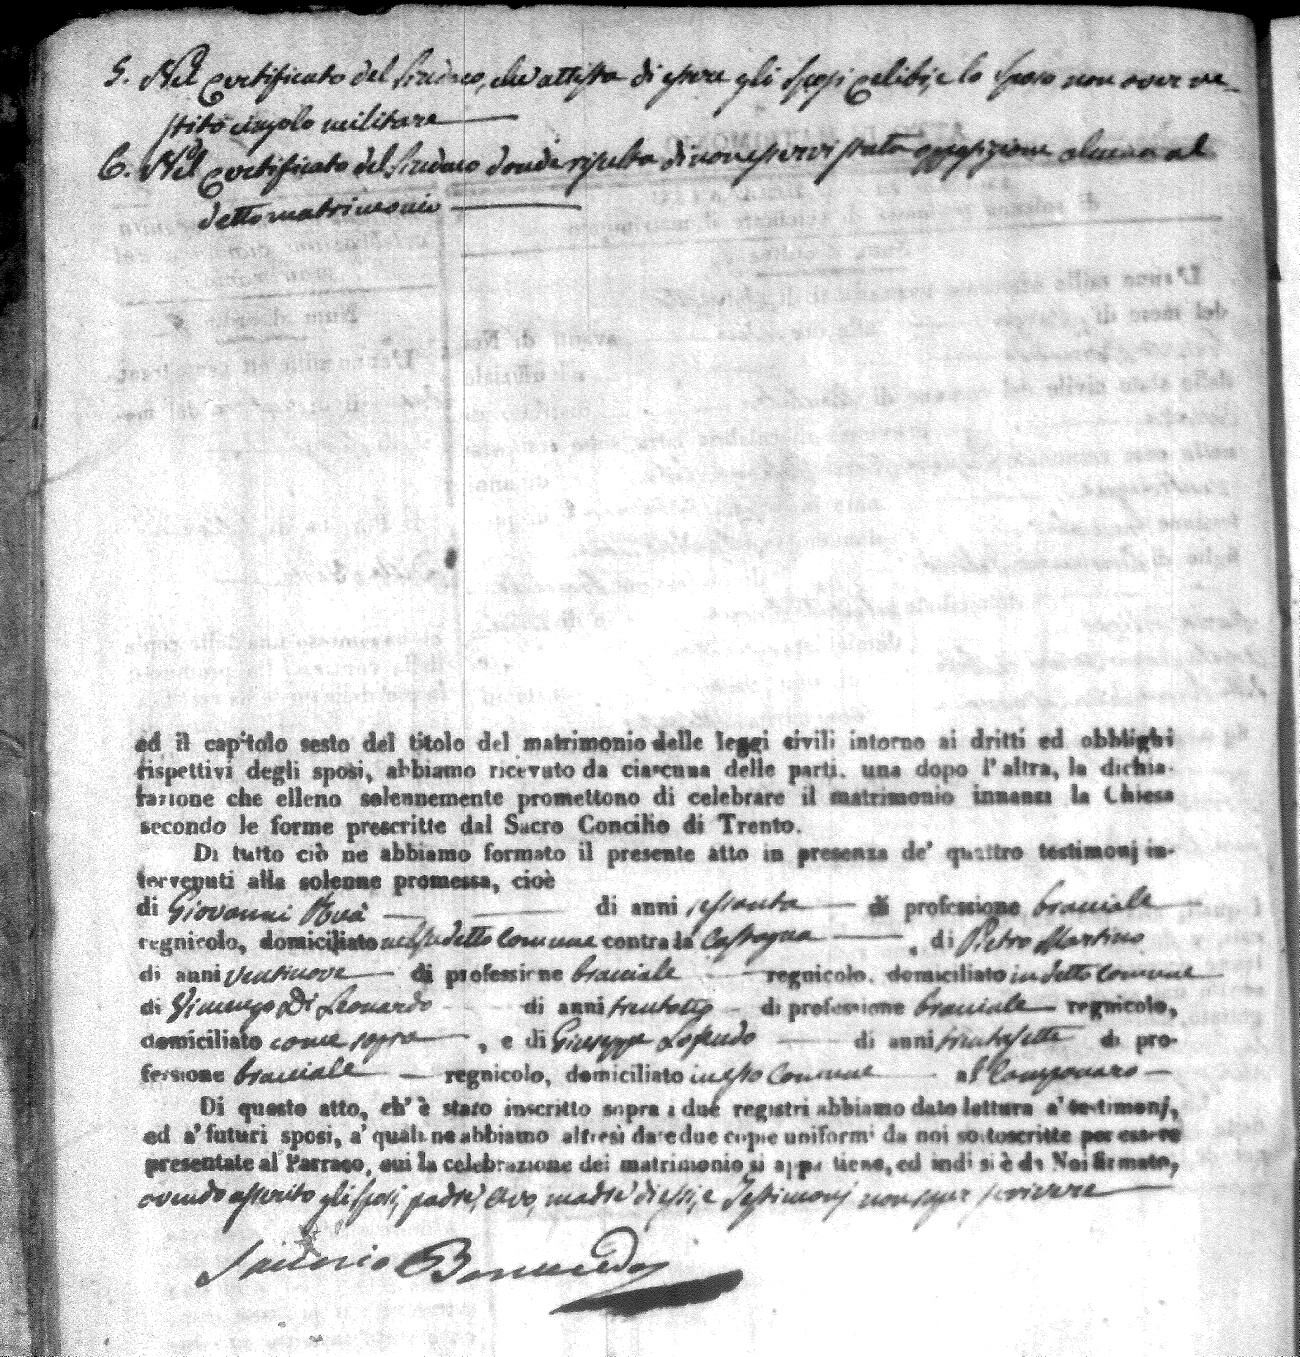 5. Nel Certificato del Sindaco, che attesta di essere gli sposi celibi, e lo sposo non aver ve-
stito cingolo militare
6. Nel Certificato del Sindaco donde risulta di non esservi stata opposizione alcuna al
detto matrimonio
ed il capitolo sesto del titolo del matrimonio delle leggi civili intorno ai dritti ed obblighi
rispettivi degli sposi, abbiamo ricevuto da ciascuna delle parti, una dopo l'altra, la dichia-
razione che elleno solennemente promettono di celebrare il matrimonio innanzi la Chiesa
secondo le forme prescritte dal Sacro Concilio di Trento.
Di tutto ciò ne abbiamo formato il presente atto in presenza de' quattro testimonj in-
tervenuti alla solenne promessa, cioè
di Giovanni di anni sessanta di professione bracciale
regnicolo, domiciliato nel sudetto Comune contrada Castagna, di Pietro Martino
di anni ventinove di professione bracciale regnicolo, domiciliato in detto Comune
di Vincenzo Di Leonardo di anni trentotto di professione bracciale regnicolo,
domiciliato come sopra, e di Giuseppe di anni trentasette di pro-
fessione bracciale regnicolo, domiciliato in esso Comune al Camponaro
Di questo atto, ch'è stato inscritto sopra i due registri abbiamo dato lettura a' testimonj,
ed a' futuri sposi, a' quali ne abbiamo altresì date due copie uniformi da noi sottoscritte per essere
presentate al Parroco, cui la celebrazione del matrimonio si appartiene, ed indi si è da Noi firmato,
avendo asserito gli sposi, padre, avo, madre di essi, e Testimonj non saper scrivere